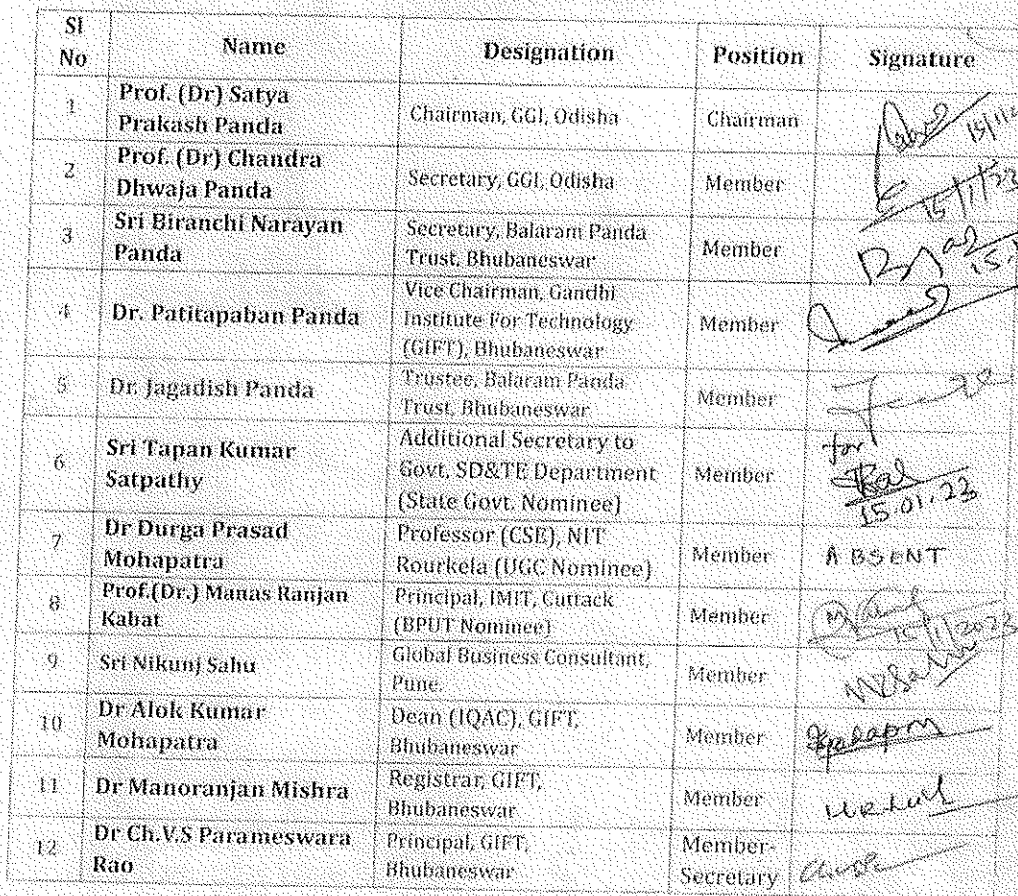 Sl No Name Designation Position Signature
1 Prof. (Dr) Satya Prakash Panda Chairman, GGI, Odisha Chairman
2 Prof. (Dr) Chandra Dhwaja Panda Secretary, GGI, Odisha Member 15/1/23
3 Sri Biranchi Narayan Panda Secretary, Balaram Panda Trust, Bhubaneswar Member
4 Dr. Patitapaban Panda Vice Chairman, Gandhi Institute For Technology (GIFT), Bhubaneswar Member
5 Dr. Jagadish Panda Trustee, Balaram Panda Trust, Bhubaneswar Member
6 Sri Tapan Kumar Satpathy Additional Secretary to Govt, SD&TE Department (State Govt. Nominee) Member for 15.01.23
7 Dr Durga Prasad Mohapatra Professor (CSE), NIT Rourkela (UGC Nominee) Member ABSENT
8 Prof.(Dr.) Manas Ranjan Kabat Principal, IMIT, Cuttack (BPUT Nominee) Member 15/1/2023
9 Sri Nikunj Sahu Global Business Consultant, Pune. Member
10 Dr Alok Kumar Mohapatra Dean (IQAC), GIFT, Bhubaneswar Member
11 Dr Manoranjan Mishra Registrar, GIFT, Bhubaneswar Member
12 Dr Ch.V.S Parameswara Rao Principal, GIFT, Bhubaneswar Member-Secretary